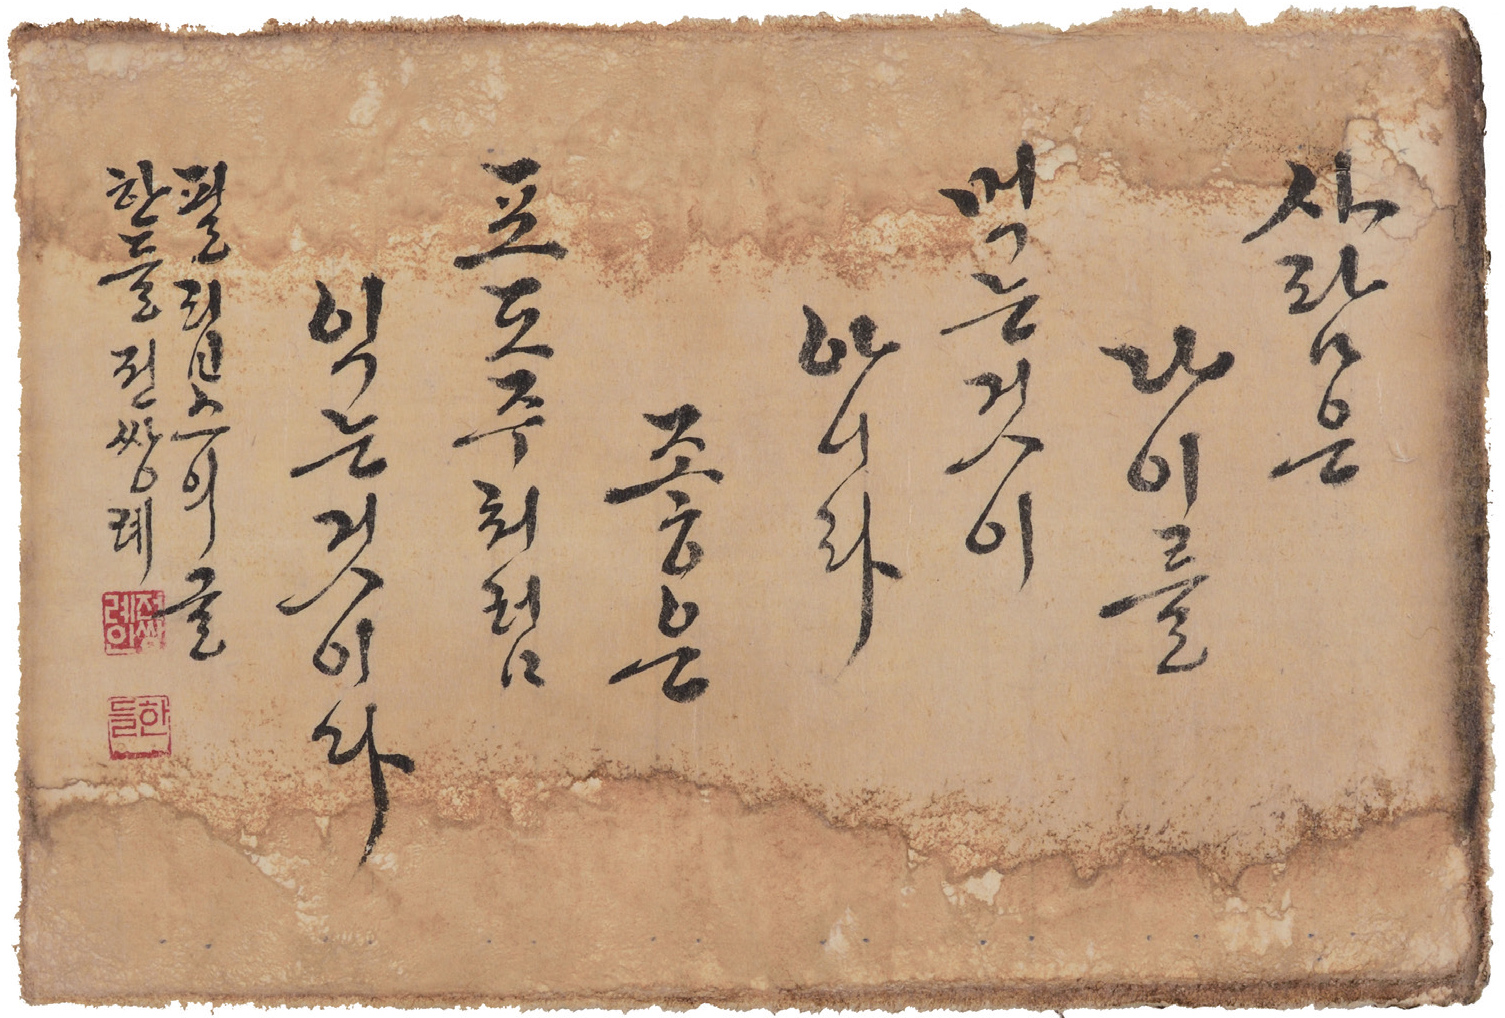 사람은
나이를
먹는것이
아니라
좋은
포도주처럼
익는것이라
필립스의 글
한들 전쌍례
전쌍례인
한들